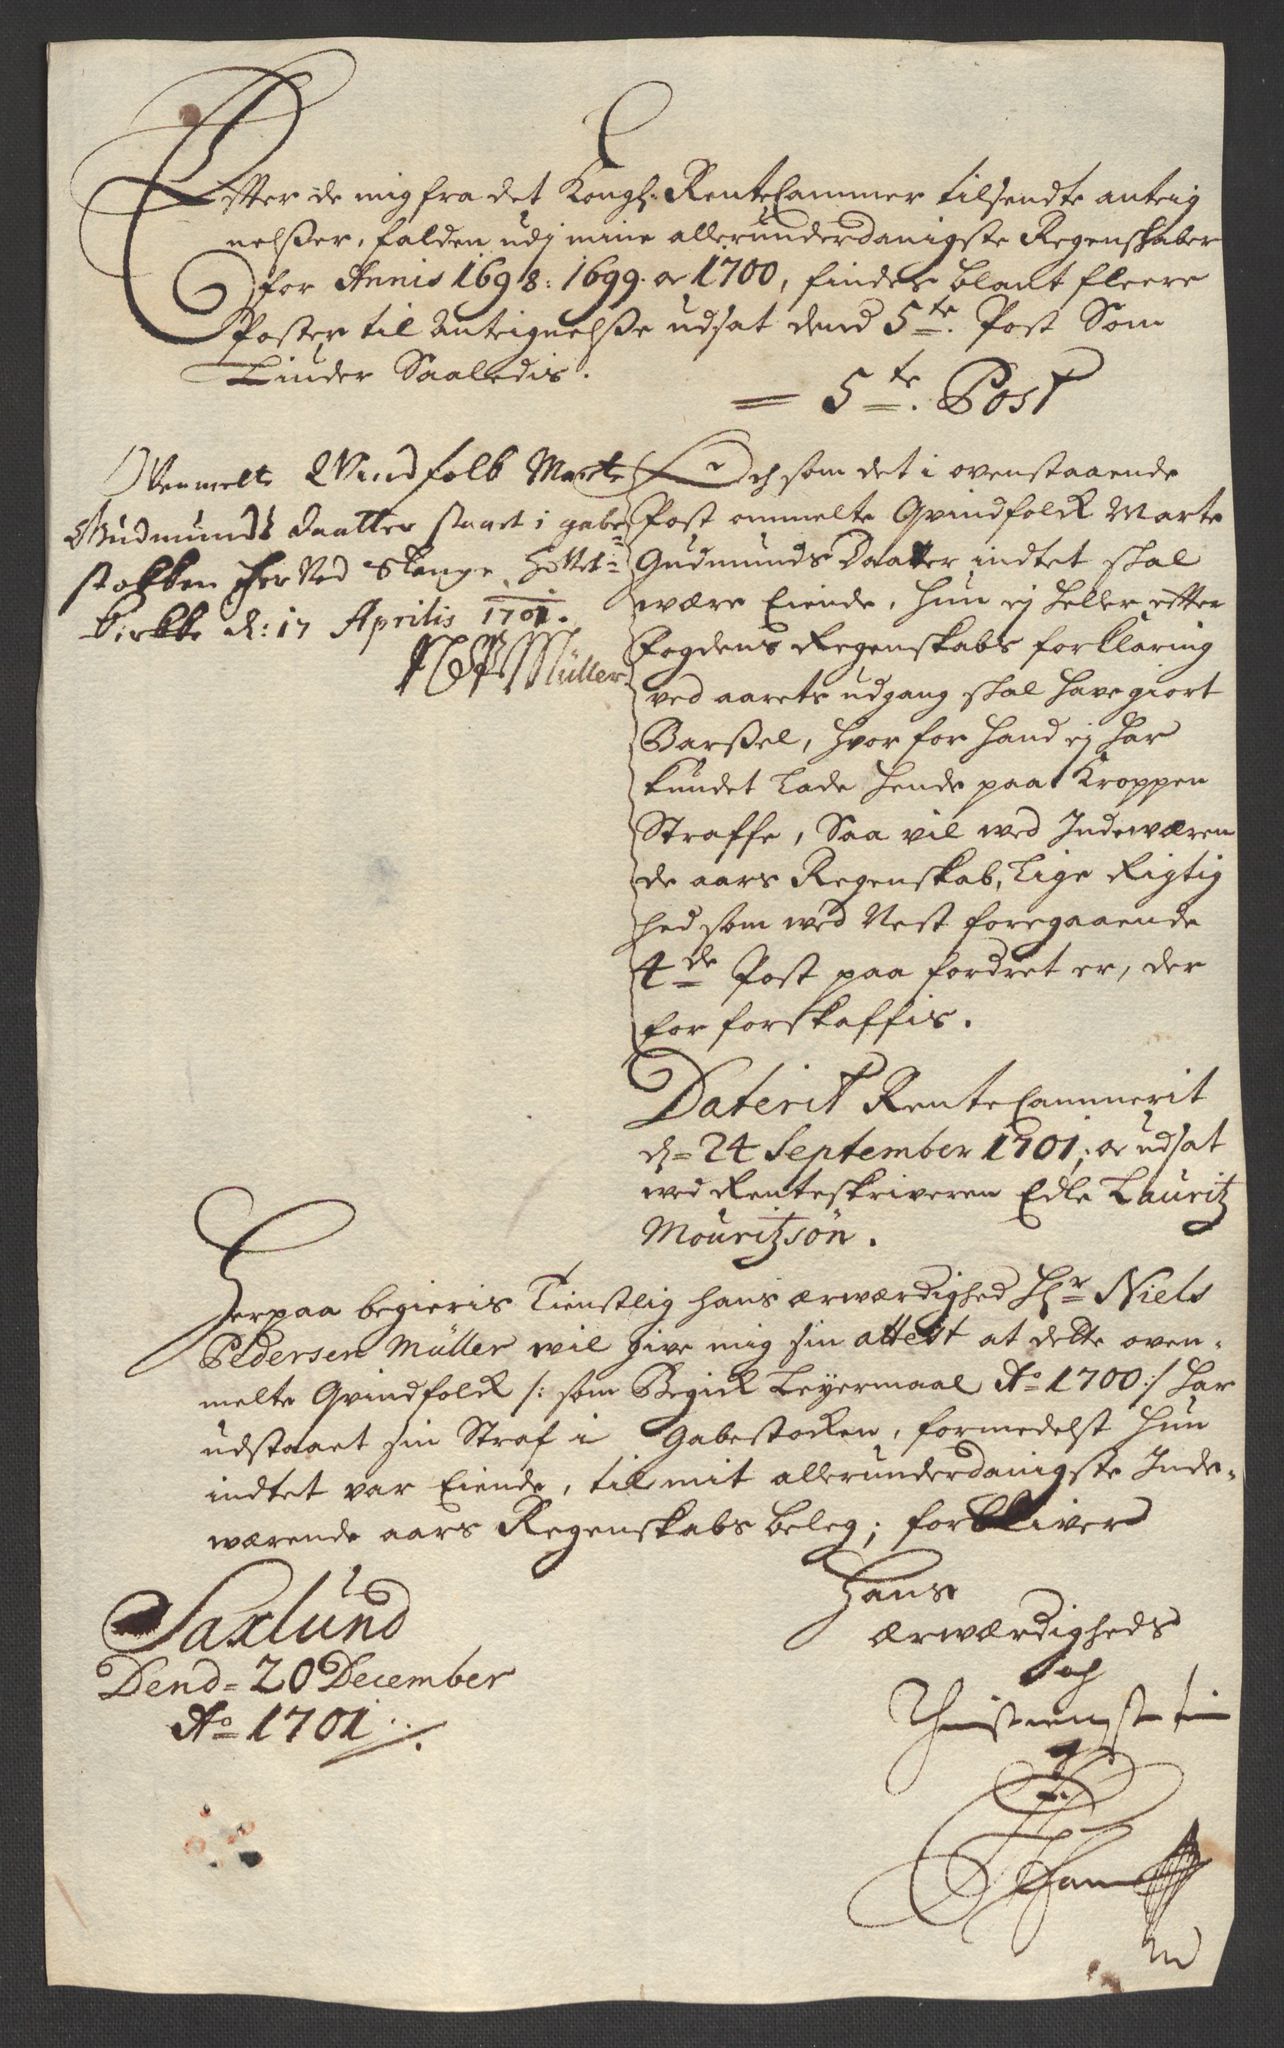 Efter de mig fra det Kongl: RenteCammer tilsendte anteig
nelsßer, falden udj mine allerunderdanigste Regenskaber
for Annis 1698: 1699. oc 1700, findes blant fleere
Poster til Anteignelsße udsat dend 5te. Post Som
Liuder Saaledis.
= 5te. Post
Ovenmelte Qvindfolk Marte
Gudmunds daatter staaet i gabe
stokken her Ved Slange Hettet
Kirkke d: 17 Aprilis 1701.
Müller
Och som det i ovenstaaende
Post ommelte Qvindfolck Marte
Gudmunds Daatter indtet skal
være Eiende, hun ej heller efter
Fogdens Regenskabs forklaring
ved aarets udgang skal have giort
Barßel, hvor for hand ej har
kundet lade hende paa Kroppen
Straffe, Saa vil wed Indewæren
de aars Regenskab, lige Rigtig
hed som wed Nest foregaaende
4de Post paa fordret er, der
for forskaffis.
Daterit RenteCammerit
d= 24 September 1701; oc udsat
wed Renteskriveren Edle Lauritz
Mouritzsön.
Herpaa begieris Tienstlig hans ærwærdighed Hr Niels
Pedersen Müller wil give mig sin attest at dette oven-
melte Qvindfolck /: som Begick Leyermaal Ao 1700:/ har
udstaaet sin Straf i Gabestocken, formedelst hun
indtet var Eiende, til mit allerunderdanigste Inde-
wærende aars Regenskabs beleg; forbliver
Hans
ærwærdigheds
Saxlund
Dend= 20 December
Ao 1701